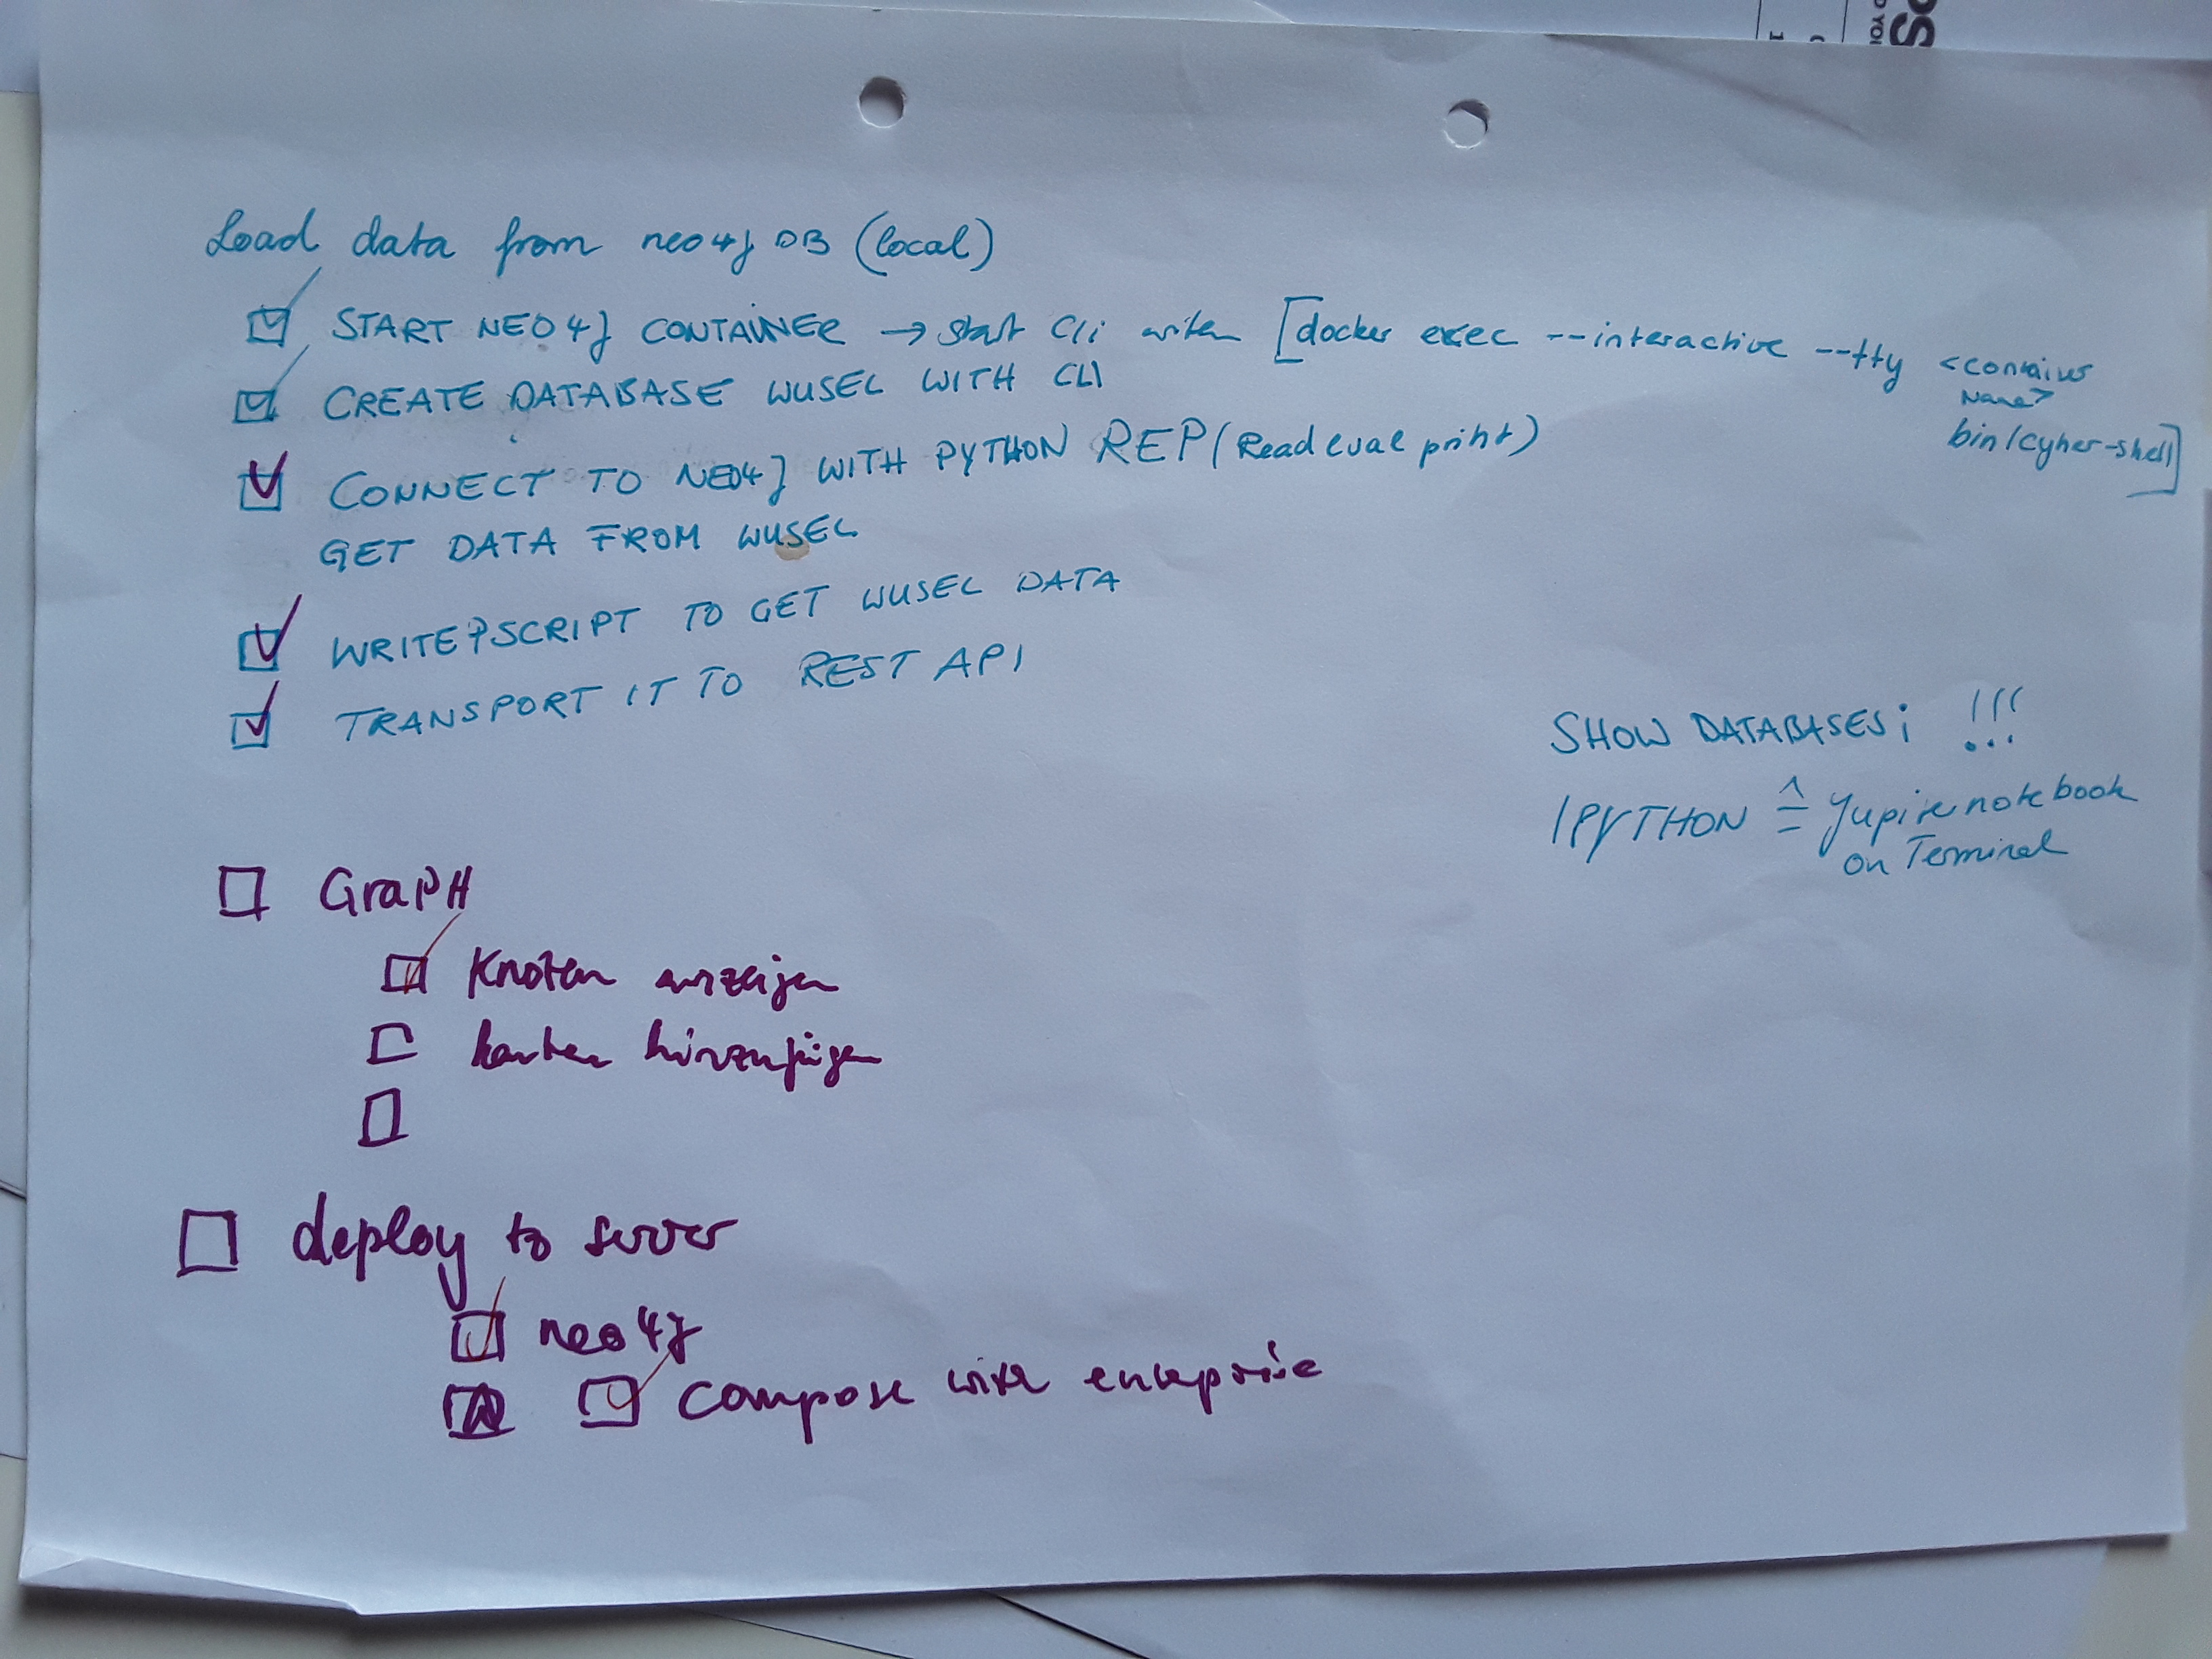 Load data from neo4j DB (local)
START NEO4J CONTAINER → start Cli with [docker exec --interactive --tty <container
Name>
bin/cyher-shell]
CREATE DATABASE WUSEL WITH CLI
CONNECT TO NEO4J WITH PYTHON REP (Read eval print)
GET DATA FROM WUSEL
WRITE SCRIPT TO GET WUSEL DATA
TRANSPORT IT TO REST API
SHOW DATABASES; !!!
IPYTHON ≙ notebook
on Terminal
GraPH
Knoten anzeigen
kanten hinzufügen
deploy to server
neo4j
compose with enterprise